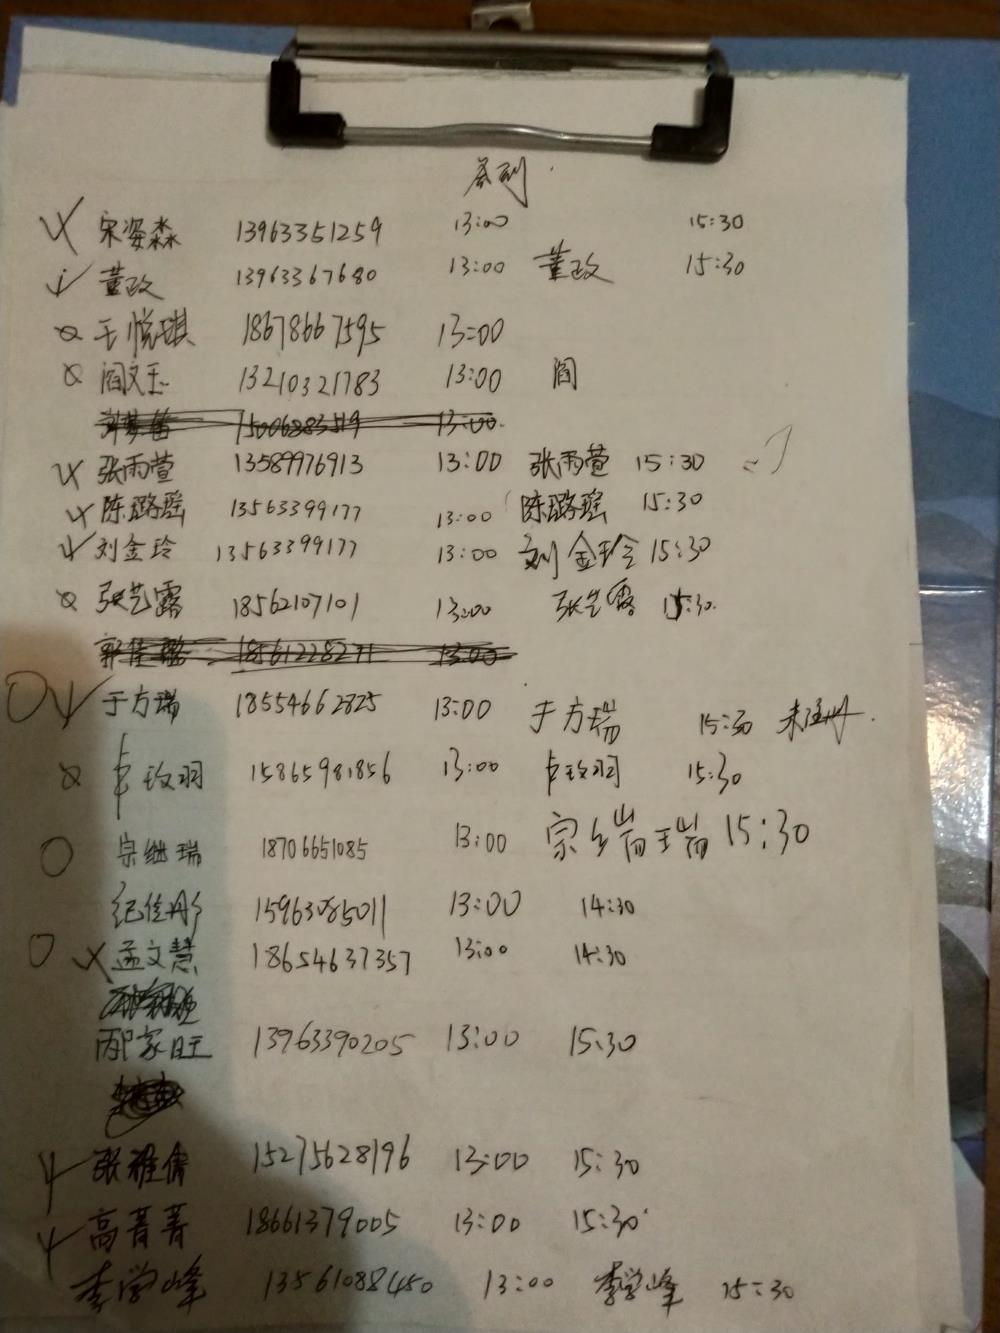 签到
宋姿淼 13963351259 13:00 15:30
董政 13963367680 13:00 董政 15:30
王悦琪 18678667595 13:00
阎文玉 13210321783 13:00 阎
15006883519 13:00
张雨萱 13589976913 13:00 张雨萱 15:30
陈璐瑶 13563399177 13:00 陈璐瑶 15:30
刘金玲 13563399177 13:00 刘金玲 15:30
张艺露 18562107101 13:00 张艺露 15:30
18561228271 13:00
于方瑞 18554662825 13:00 于方瑞 15:30 未注册
卢玫羽 15865981856 13:00 卢玫羽 15:30
宗继瑞 18706651085 13:00 15:30
纪佳彤 15963085011 13:00 14:30
孟文慧 18654637357 13:00 14:30
邴家旺 13963390205 13:00 15:30
张雅倩 15275628196 13:00 15:30
高菁菁 18661379005 13:00 15:30
李学峰 13561088450 13:00 李学峰 15:30